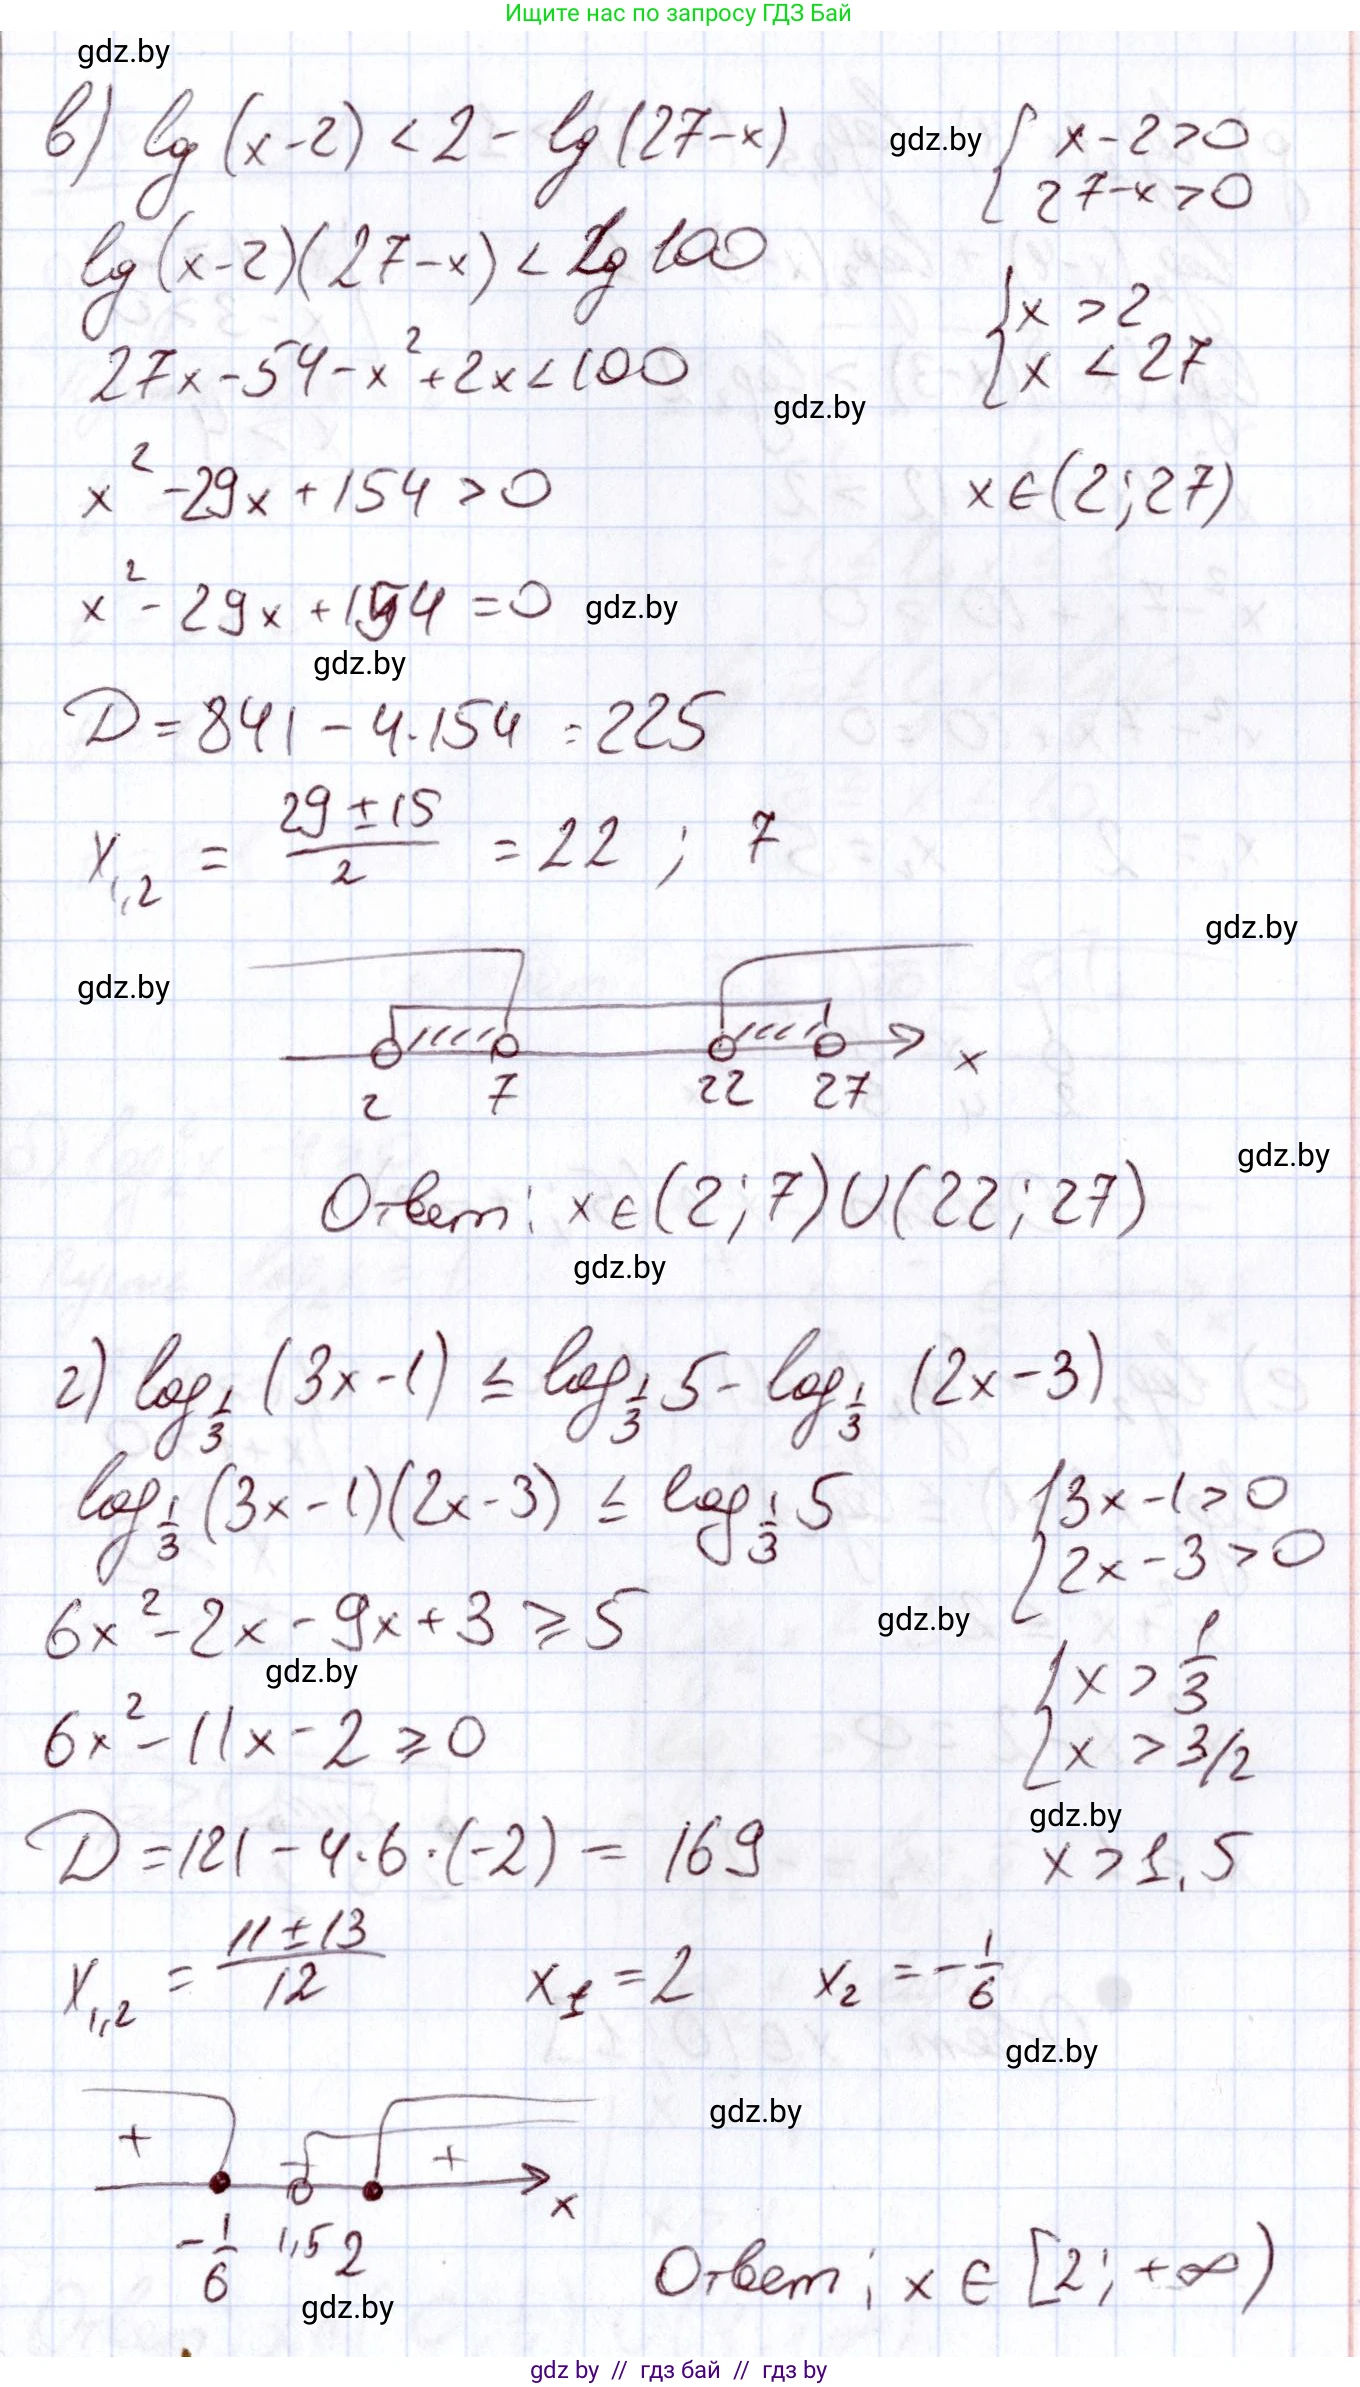 Ищите нас по запросу ГДЗ Бай
gdz.by
в) lg (x-2) < 2 - lg (27-x)
gdz.by
{ x-2>0
27-x>0
lg (x-2)(27-x) < lg 100
{ x > 2
x < 27
27x-54-x²+2x<100
gdz.by
x²-29x+154>0
x∈(2;27)
x²-29x+154=0
gdz.by
gdz.by
D=841-4·154=225
x₁,₂ = (29±15)/2 = 22 ; 7
gdz.by
gdz.by
2 7 22 27 x
gdz.by
Ответ: x∈(2;7)U(22;27)
gdz.by
г) log_1/3 (3x-1) ≤ log_1/3 5 - log_1/3 (2x-3)
log_1/3 (3x-1)(2x-3) ≤ log_1/3 5
{ 3x-1>0
2x-3>0
6x²-2x-9x+3≥5
gdz.by
gdz.by
{ x > 1/3
x > 3/2
6x²-11x-2≥0
gdz.by
D=121-4·6·(-2)=169
x>1,5
x₁,₂ = (11±13)/12 x₁=2 x₂=-1/6
gdz.by
gdz.by
+ - +
x
-1/6 1,5 2
Ответ: x∈[2;+∞)
gdz.by
gdz by // гдз бай // гдз by